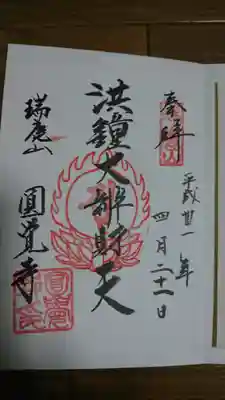 奉拝
平成卅一年
四月二十一日
洪鐘大辨財天
瑞鹿山
圓覺寺